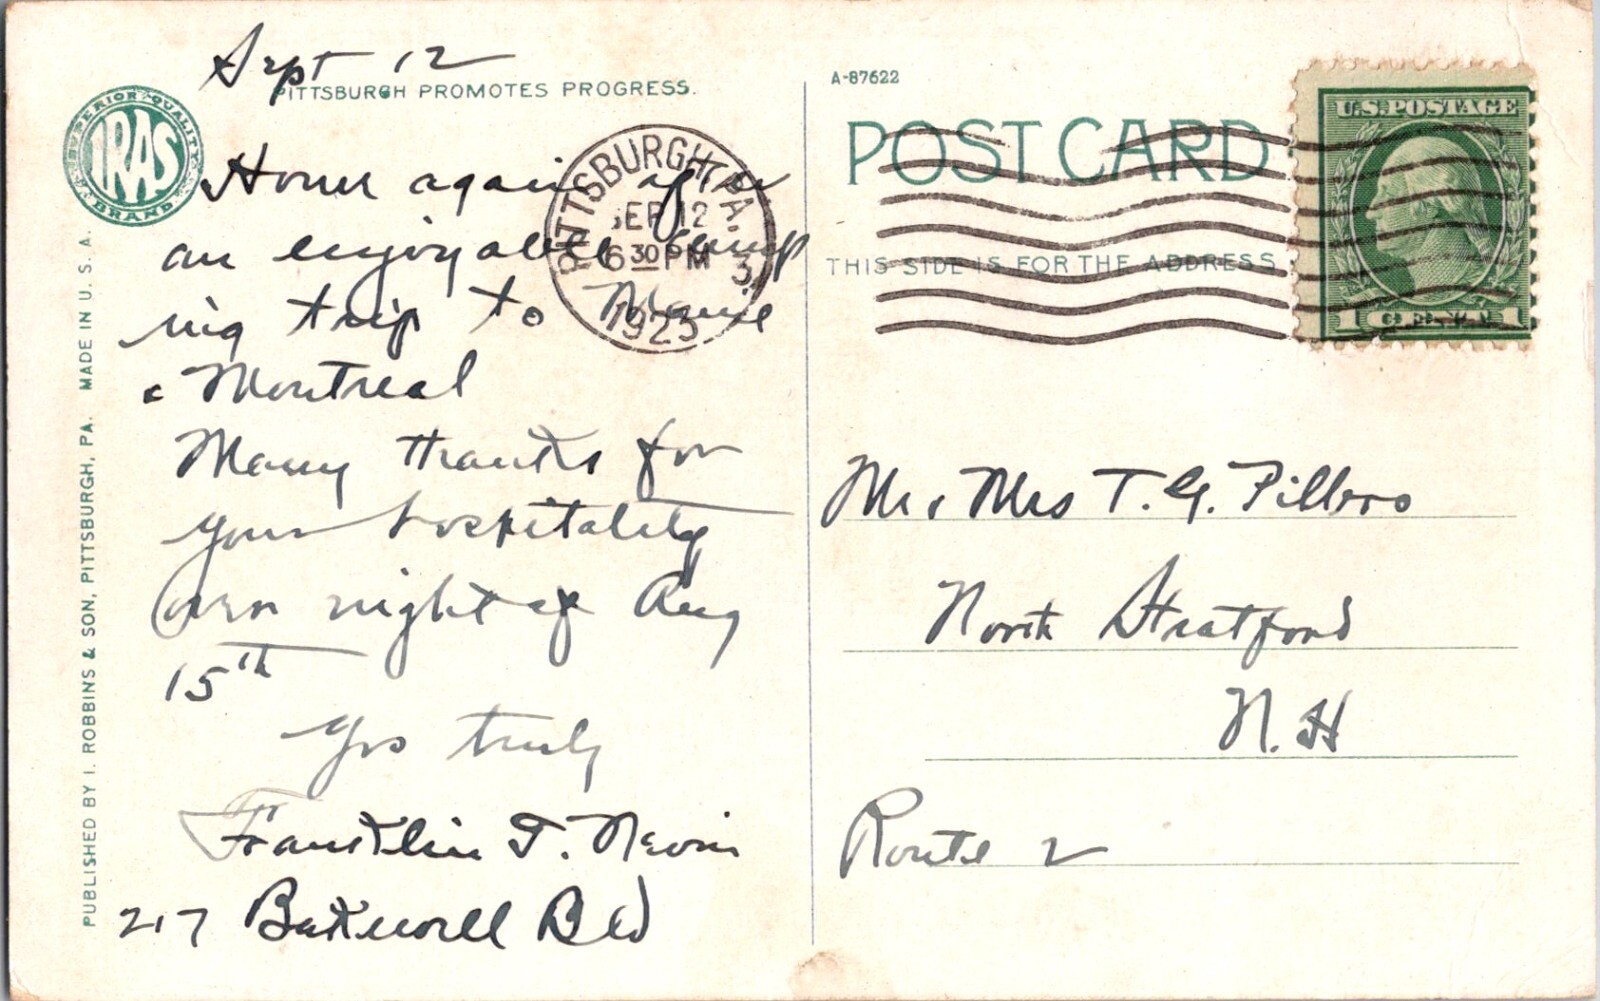 Sept 12
PITTSBURGH PROMOTES PROGRESS.
SUPERIOR QUALITY
IRAS
BRAND
Home again after
an enjoyable camp
ing trip to Maine
& Montreal
Many thanks for
your hospitality
over night of Aug
15th
Yrs truly
Franklin T. Nevin
217 Bakewell Bld
PUBLISHED BY I. ROBBINS & SON, PITTSBURGH, PA. MADE IN U. S. A.
PITTSBURGH, PA. 3
SEP 12
6 30 PM
1923
A-87622
POST CARD
THIS SIDE IS FOR THE ADDRESS
U.S. POSTAGE
1 CENT 1
Mr & Mrs T. G.
North Stratford
N. H
Route 2